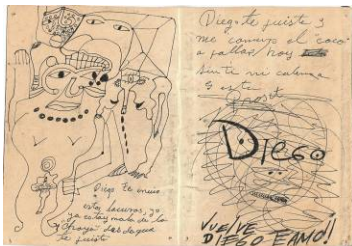 Diego te envio
estas locuras, yo
ya estoy mala de la
desde que
te fuiste
Diego te fuiste y
me comenzo el "coco"
a fallar, hoy
siente mi cabeza
y este
DIEGO
VUELVE
DIEGO